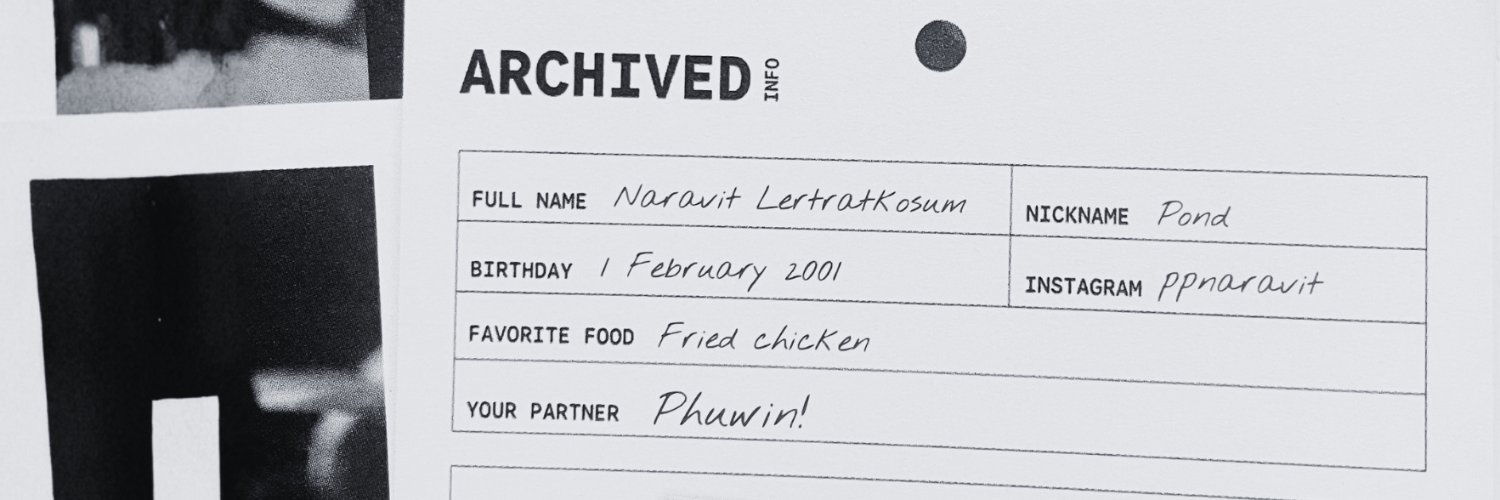 ARCHIVED INFO
FULL NAME Naravit Lertratkosum NICKNAME Pond
BIRTHDAY 1 February 2001 INSTAGRAM ppnaravit
FAVORITE FOOD Fried chicken
YOUR PARTNER Phuwin!